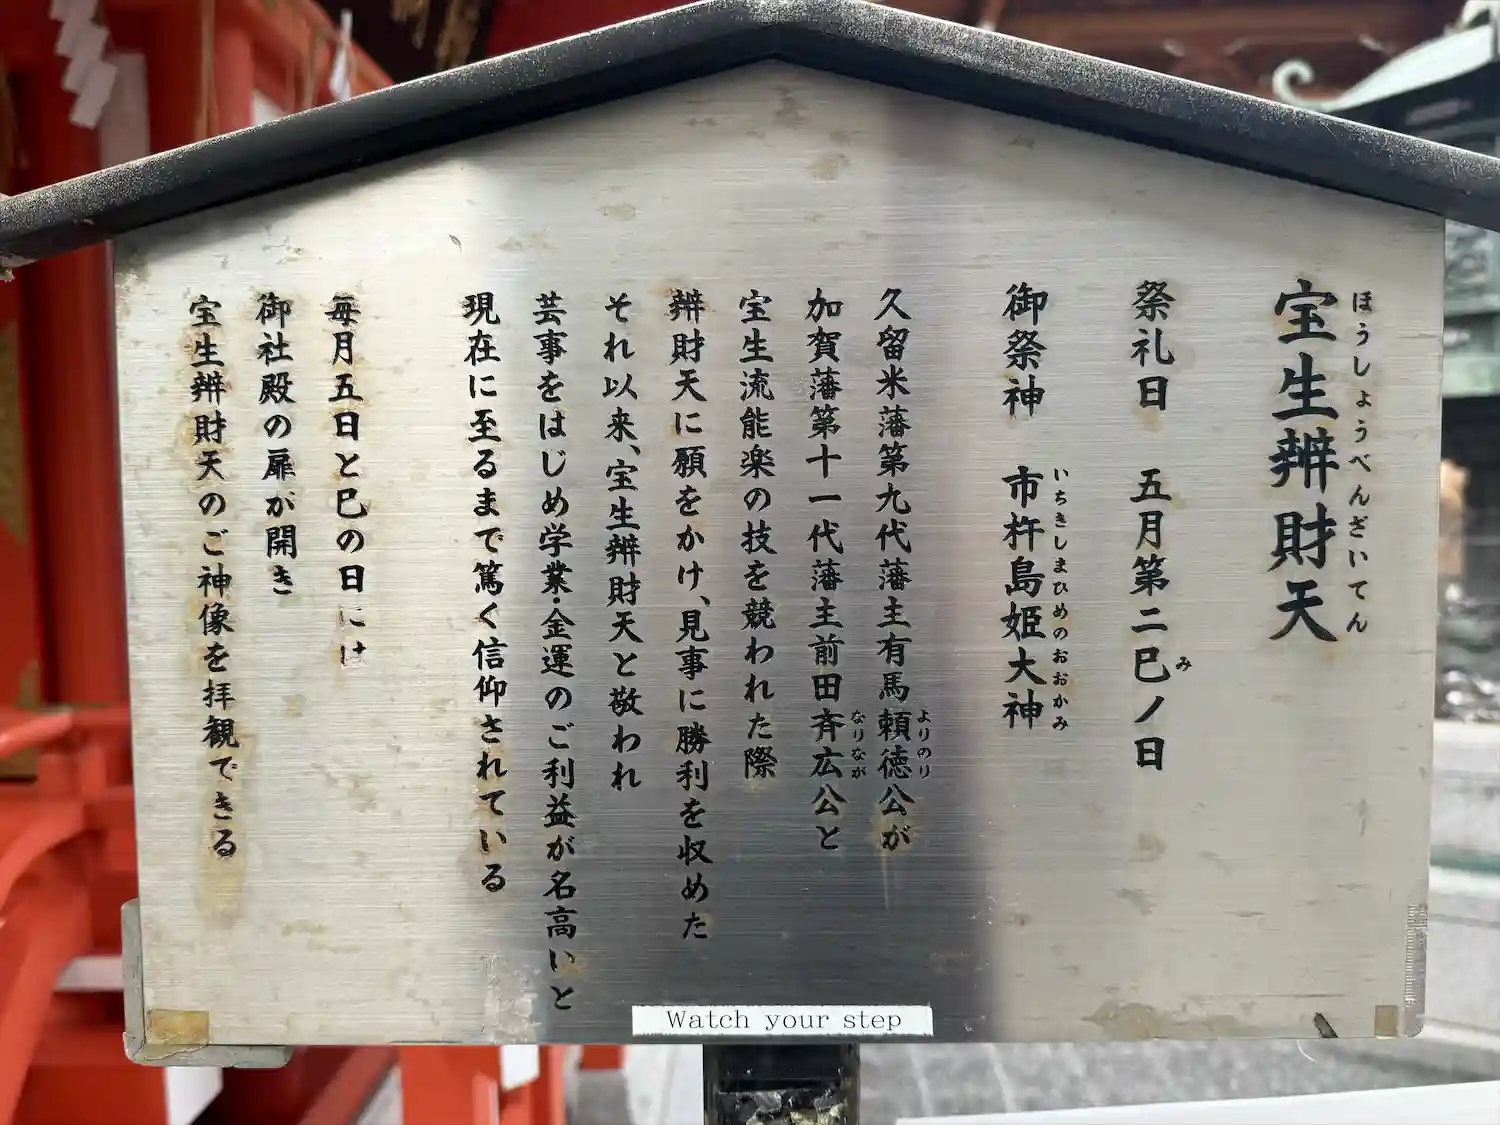 宝生辨財天
ほうしょうべんざいてん
祭礼日 五月第二巳ノ日
み
御祭神 市杵島姫大神
いちきしまひめのおおかみ
久留米藩第九代藩主有馬頼徳公が
よりのり
加賀藩第十一代藩主前田斉広公と
なりなが
宝生流能楽の技を競われた際
辨財天に願をかけ、見事に勝利を収めた
それ以来、宝生辨財天と敬われ
芸事をはじめ学業・金運のご利益が名高いと
現在に至るまで篤く信仰されている
毎月五日と巳の日には
御社殿の扉が開き
宝生辨財天のご神像を拝観できる
Watch your step